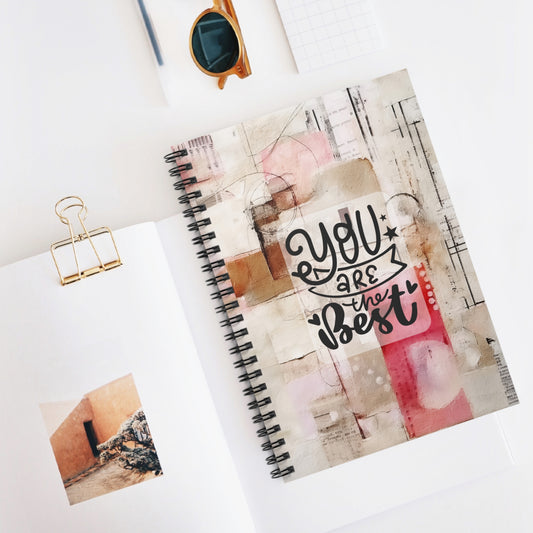 YOU
ARE
the
Best